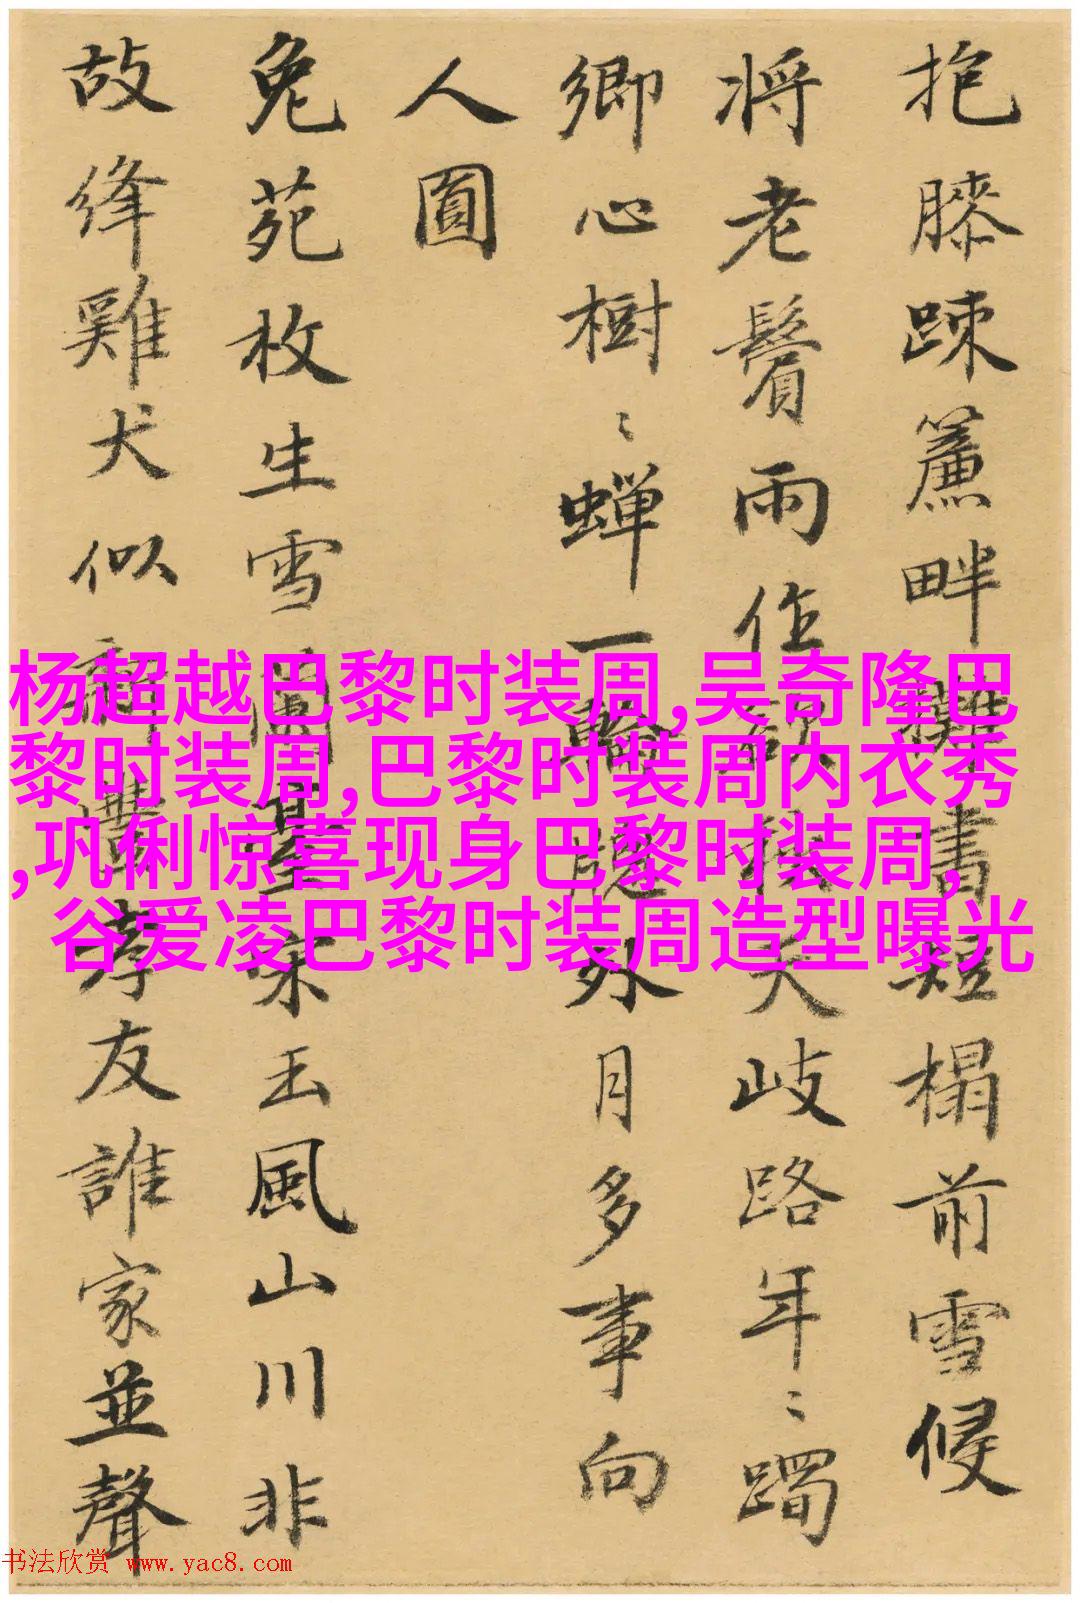 抱膝踈簾畔攤書短榻前雪侵
将老鬢雨作欲秋天岐路年〻躅
鄉心樹〻蟬一輪牕外月多事向
人圓
兔苑枚生雪蘭臺宋玉風山川非
故絳雞犬似新豐孝友誰家並聲
杨超越巴黎时装周,吴奇隆巴
黎时装周,巴黎时装周内衣秀
,巩俐惊喜现身巴黎时装周,
谷爱凌巴黎时装周造型曝光
书法欣赏 www.yac8.com